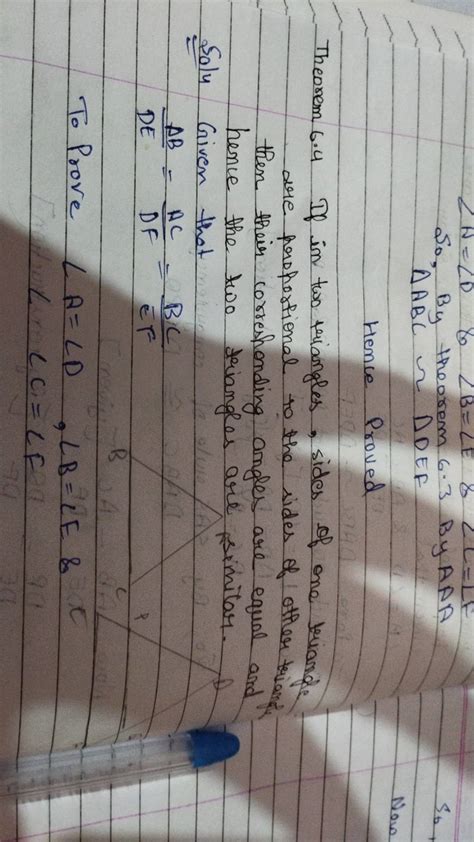 ∠A = ∠D & ∠B = ∠E & ∠C = ∠F
So, By theorem 6.3 By AAA
ΔABC ~ ΔDEF
Hence Proved
Theorem 6.4 If in two triangles, sides of one triangle
are proportional to the sides of other triangle
then their corresponding angles are equal and
hence the two triangles are similar.
Soln Given that
AB/DE = AC/DF = BC/EF
To Prove ∠A = ∠D , ∠B = ∠E &
∠C = ∠F
B
C
D
So,
Now